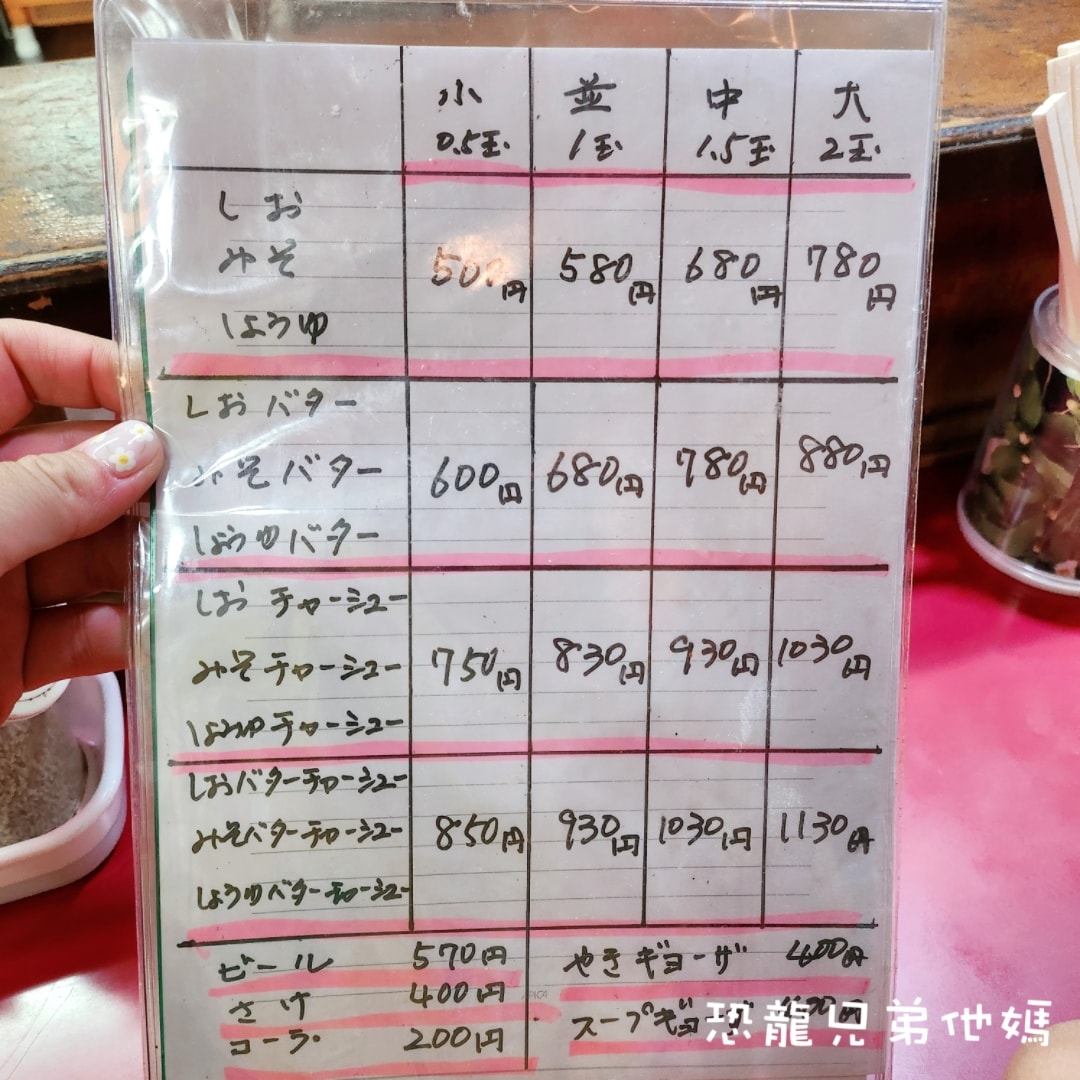 小 並 中 大
0.5玉 1玉 1.5玉 2玉
しお
みそ 500円 580円 680円 780円
しょうゆ
しおバター
みそバター 600円 680円 780円 880円
しょうゆバター
しおチャーシュー
みそチャーシュー 750円 830円 930円 1030円
しょうゆチャーシュー
しおバターチャーシュー
みそバターチャーシュー 850円 930円 1030円 1130円
しょうゆバターチャーシュー
ビール 570円 やきギョーザ 400円
さけ 400円 スープギョーザ
コーラ 200円
恐龍兄弟他媽